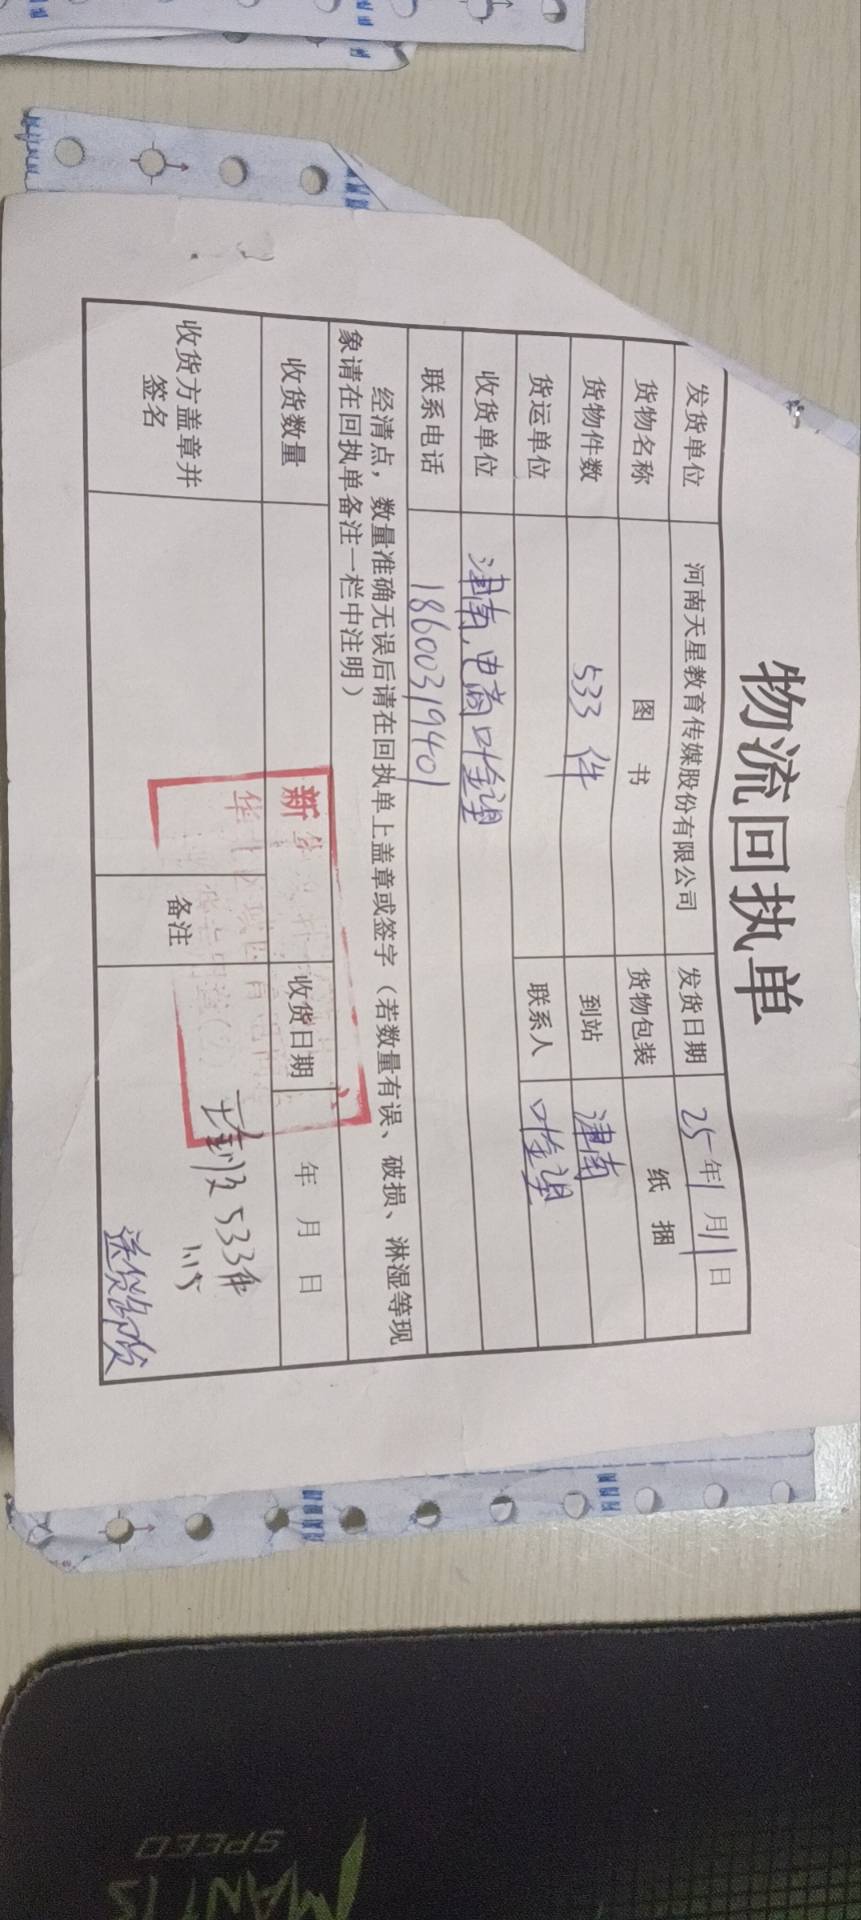 物流回执单
发货单位 河南天星教育传媒股份有限公司 发货日期 25年1月11日
货物名称 图书 货物包装 纸捆
货物件数 533件 到站 津南
货运单位 联系人 叶金混
收货单位 津南,电商叶金混
联系电话 18600319401
经清点，数量准确无误后请在回执单上盖章或签字（若数量有误、破损、淋湿等现
象请在回执单备注一栏中注明）
收货数量 收货日期 年 月 日
收货方盖章并
签名
备注
533件
1.15
送货卸货
新华
华北区域
SPEED
MANTIS